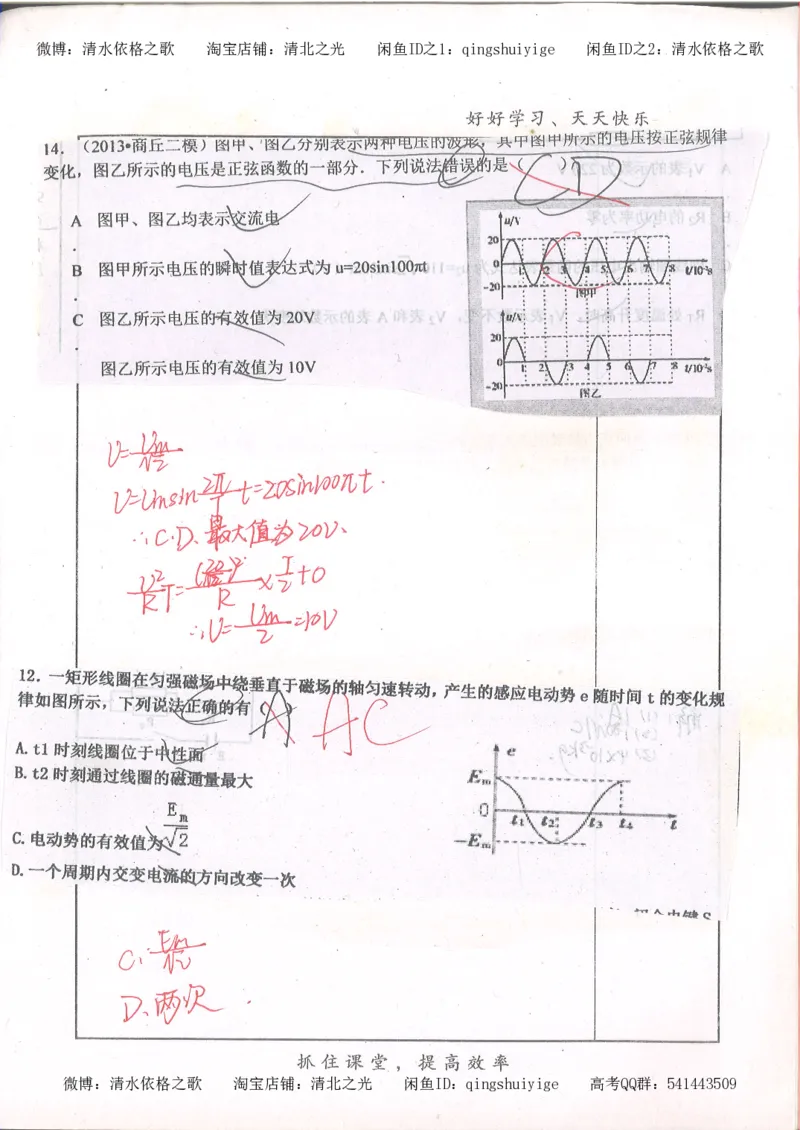 微博：清水依格之歌 淘宝店铺：清北之光 闲鱼ID之1：qingshuiyige 闲鱼ID之2：清水依格之歌
好好学习、天天快乐
14. （2013•商丘二模）图甲、图乙分别表示两种电压的波形，其中图甲所示的电压按正弦规律
变化，图乙所示的电压是正弦函数的一部分．下列说法错误的是（ ）
A 图甲、图乙均表示交流电
.
B 图甲所示电压的瞬时值表达式为 u=20sin100πt
.
C 图乙所示电压的有效值为 20V
.
图乙所示电压的有效值为 10V
u/V
20
0
-20
1 2 3 4 5 6 7 8 t/10⁻²s
图甲
u/V
20
0
-20
1 2 3 4 5 6 7 8 t/10⁻²s
图乙
U=Um/√2
U=Umsin 2π/T t=20sin100πt.
∴C.D、最大值为20V、
U²/R T= (20/√2)²/R ×T/2+0
∴U=Um/2=10V
12. 一矩形线圈在匀强磁场中绕垂直于磁场的轴匀速转动，产生的感应电动势 e 随时间 t 的变化规
律如图所示，下列说法正确的有（A）
AC
A. t1 时刻线圈位于中性面
B. t2 时刻通过线圈的磁通量最大
C. 电动势的有效值为 Em/√2
D. 一个周期内交变电流的方向改变一次
e
Em
0
-Em
t1 t2 t3 t4 t
C. Em/√2
D、两次
抓住课堂，提高效率
微博：清水依格之歌 淘宝店铺：清北之光 闲鱼ID：qingshuiyige 高考QQ群：541443509